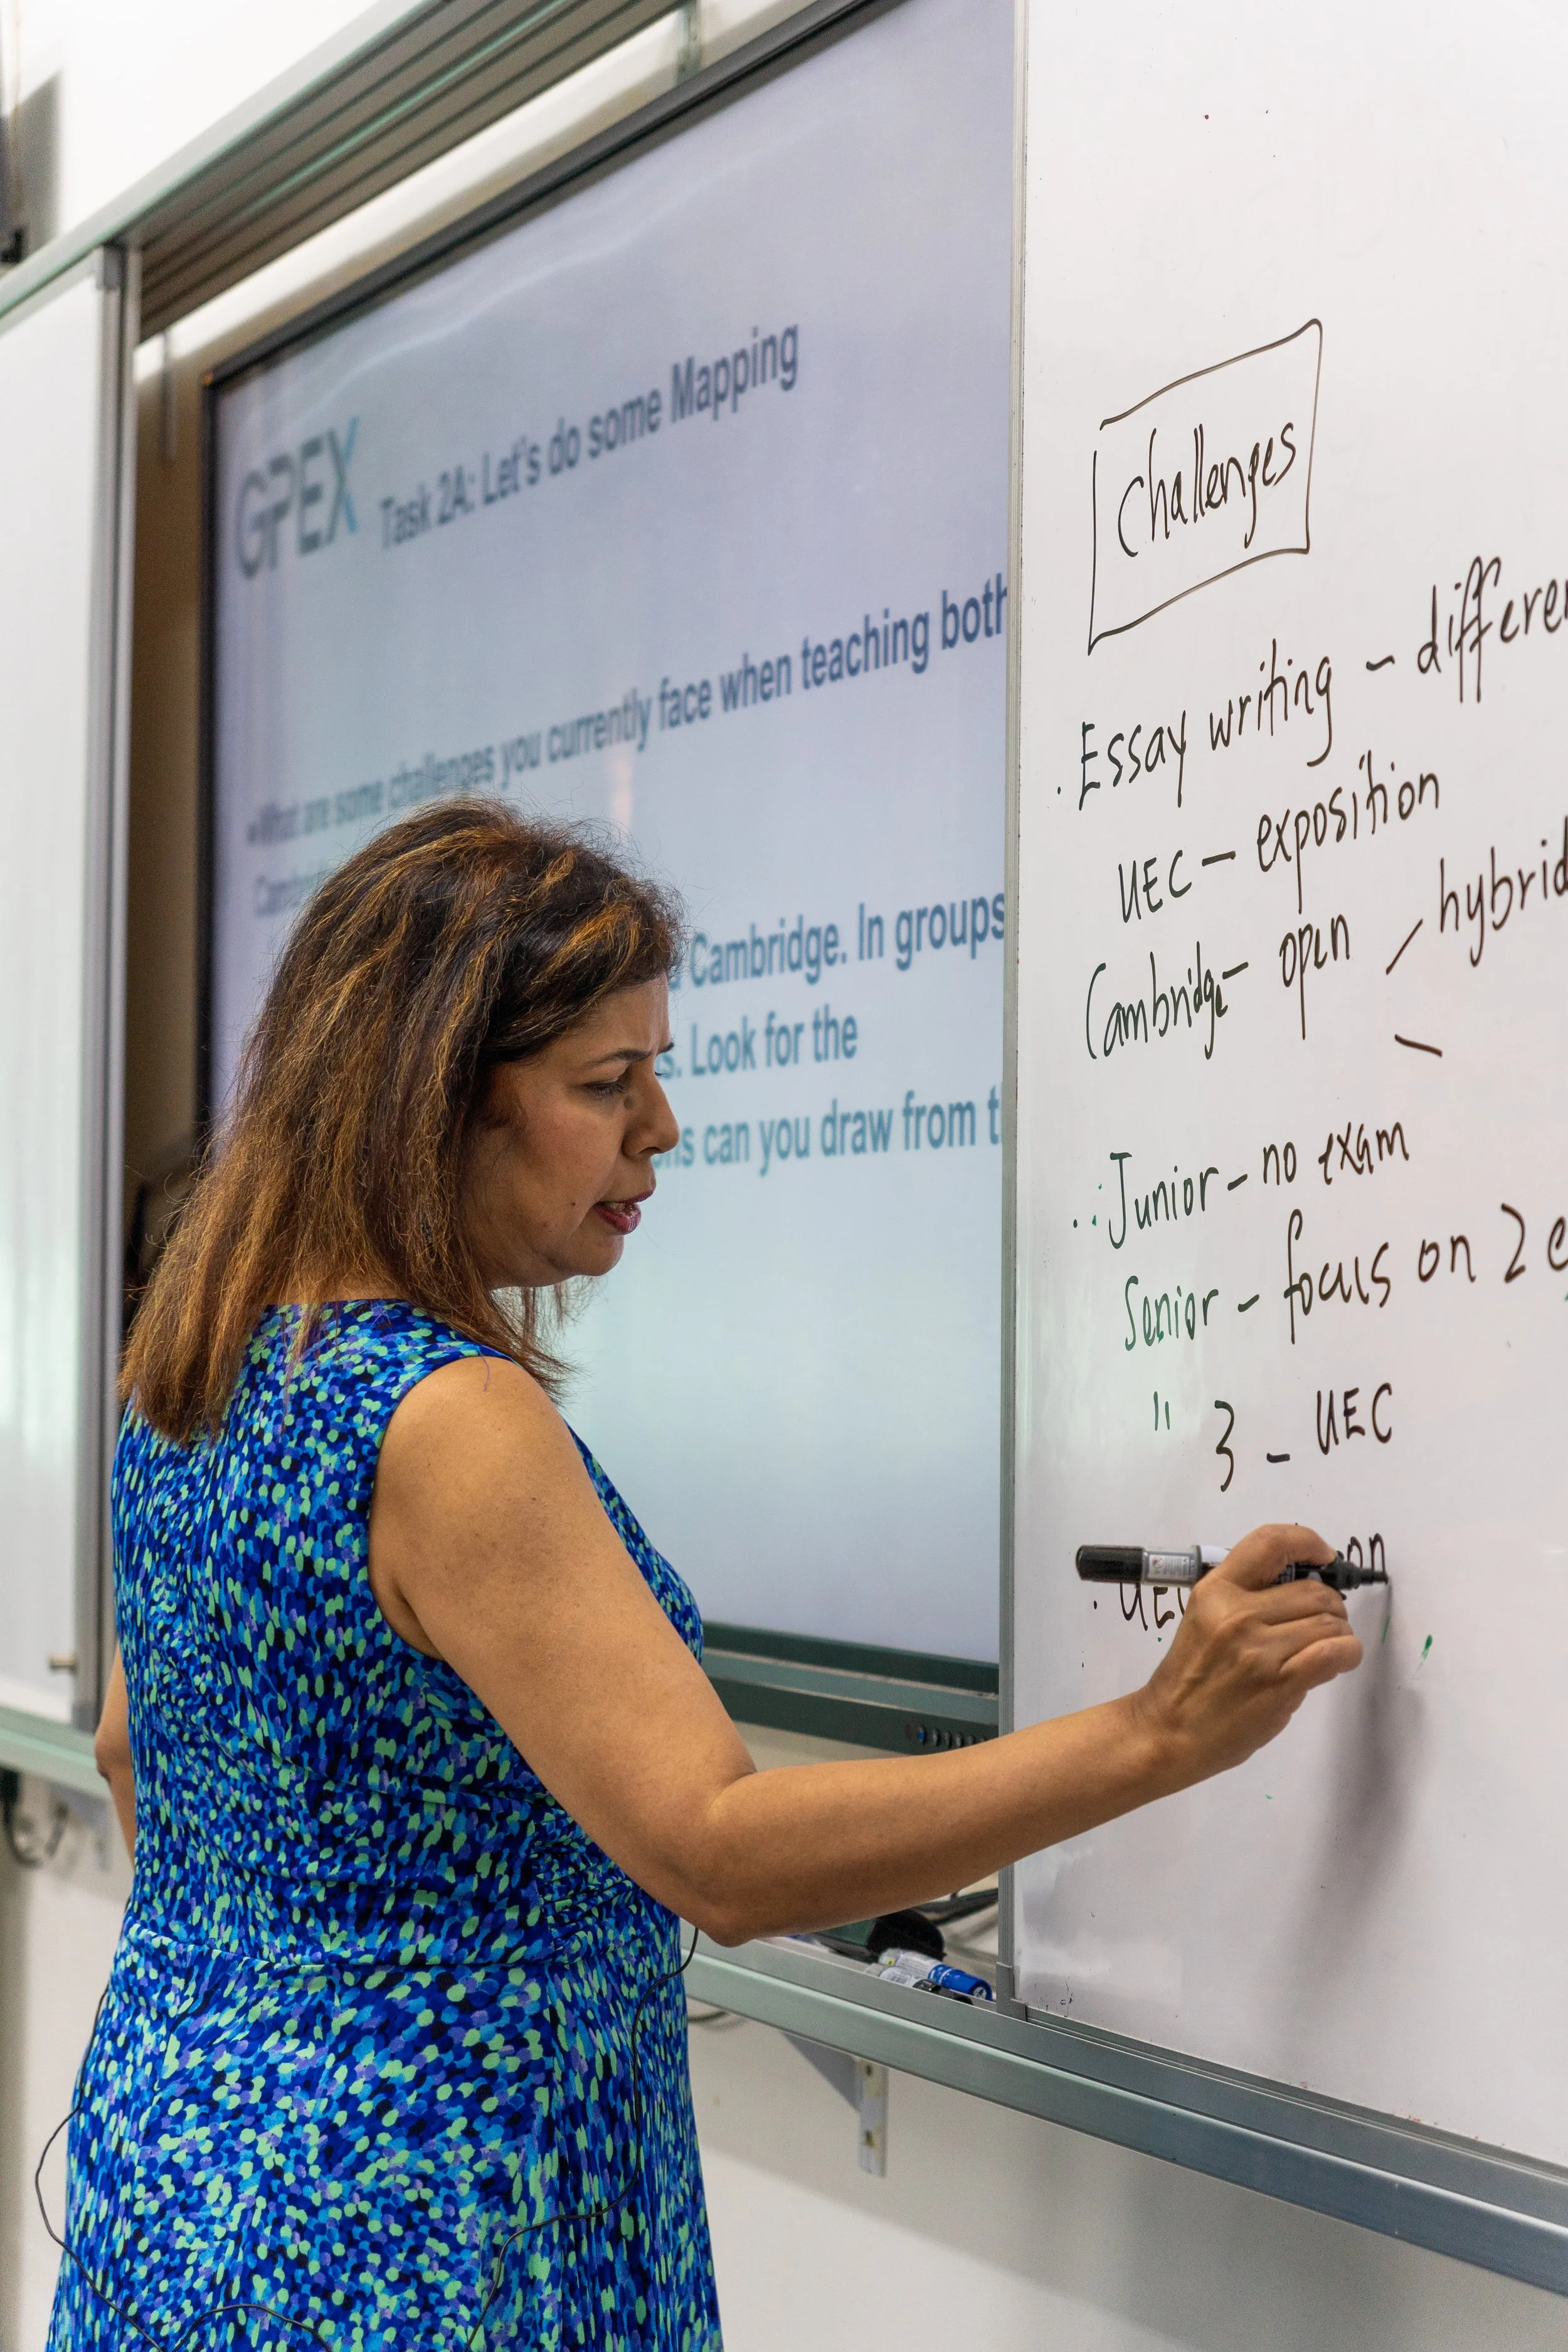 GPEX
Task 2A: Let's do some Mapping
•What are some challenges you currently face when teaching both
Cambridge. In groups
. Look for the
can you draw from
Challenges
. Essay writing -
UEC - exposition
Cambridge - open / hybrid
\
Junior - no exam
Senior - focus on 2
" 3 - UEC
. UEC